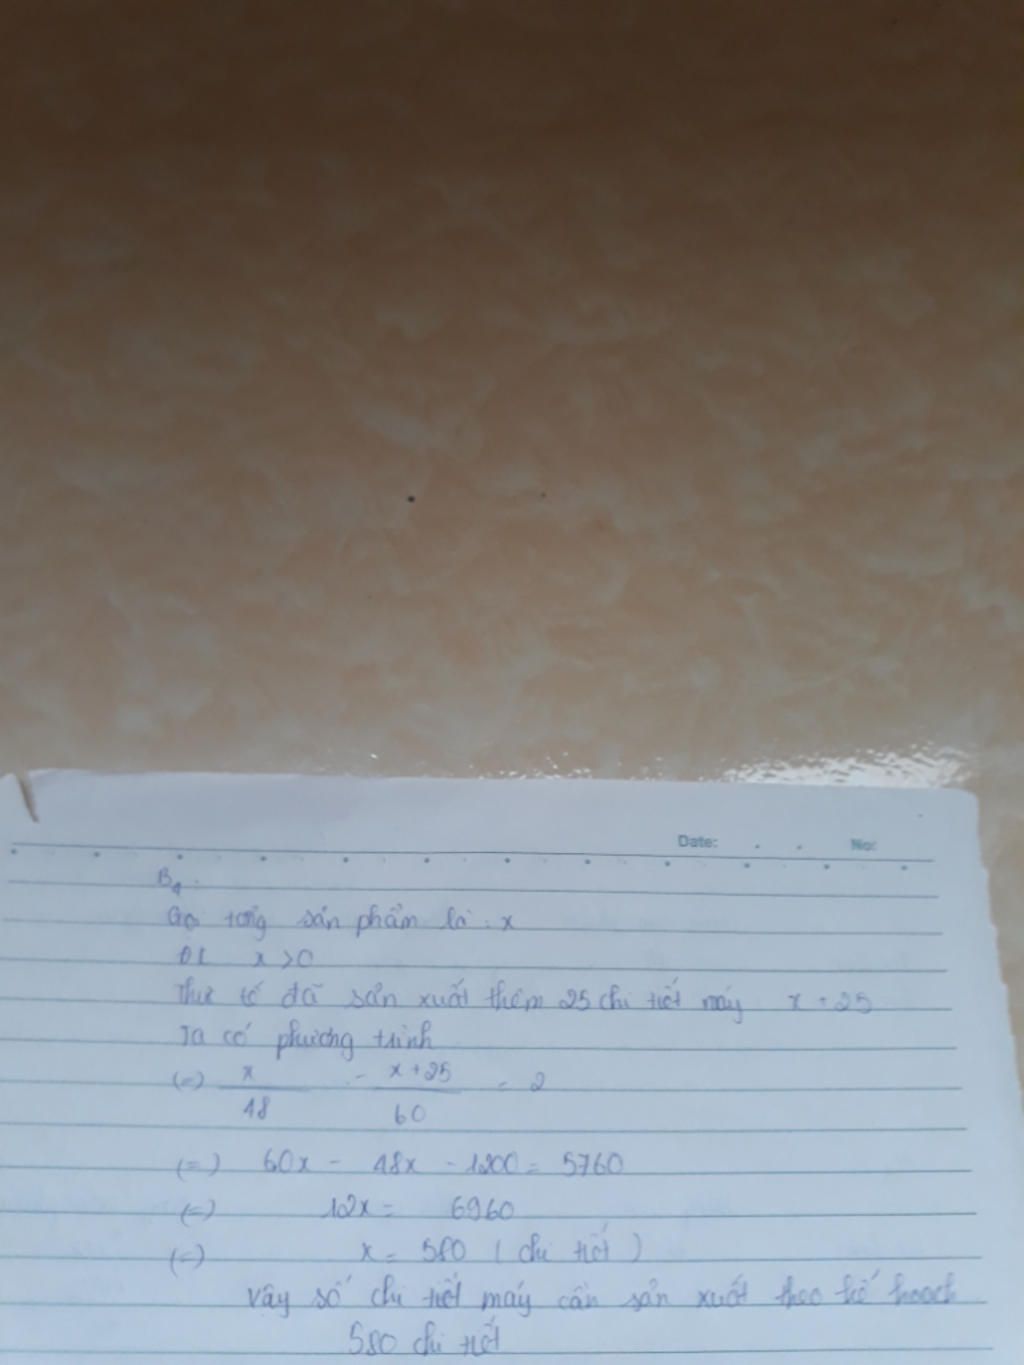 Date: No:
B4.
Gọi tổng sản phẩm là: x
ĐK x > 0
Thực tế đã sản xuất thêm 25 chi tiết máy x + 25
Ta có phương trình
(=) x/48 - (x+25)/60 = 2
(=) 60x - 48x - 1200 = 5760
(=) 12x = 6960
(=) x = 580 (chi tiết)
Vậy số chi tiết máy cần sản xuất theo kế hoạch
580 chi tiết